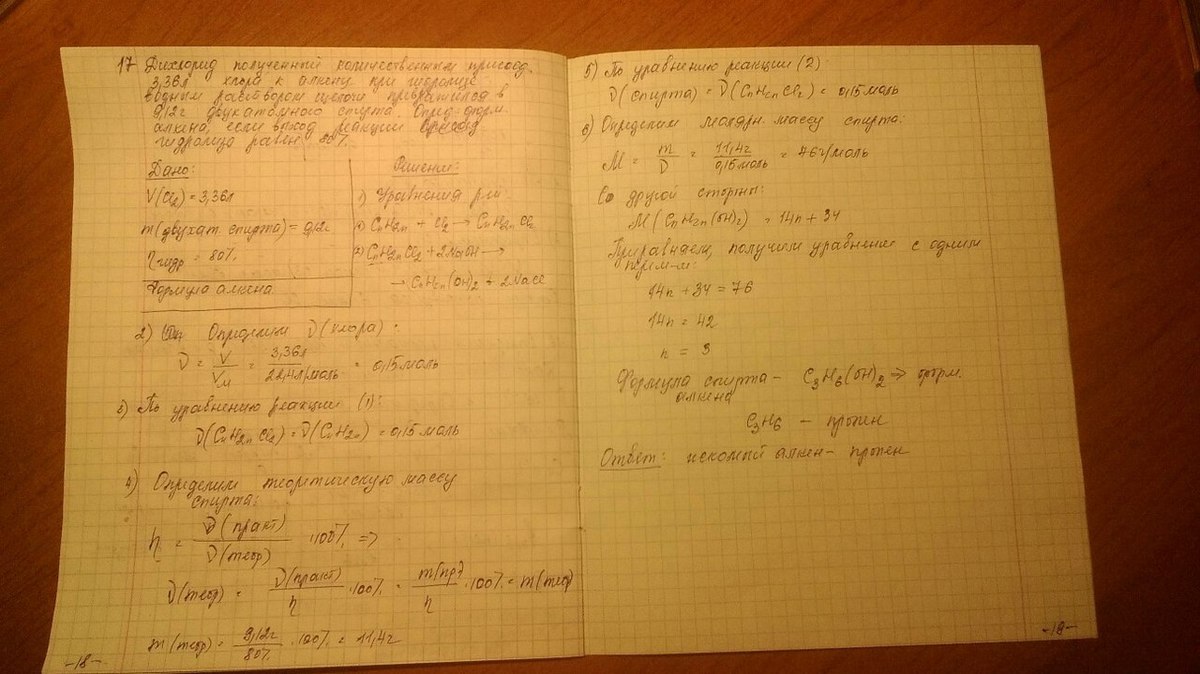 17 Дихлорид полученный количественным присоед.
3,36л хлора к алкену при гидролизе
водным раствором щелочи превратился в
9,12г двухатомного спирта. Опред. форм.
алкена, если выход реакции
гидролиза равен 80%.
Дано:
V(Cl2) = 3,36л
m(двухат. спирта) = 9,12г
η гидр = 80%
Формула алкена
Решение:
1) Уравнения р-ии
1) CnH2n + Cl2 → CnH2nCl2
2) CnH2nCl2 + 2NaOH →
→ CnH2n(OH)2 + 2NaCl
2) Определим ν(хлора):
ν = V/Vм = 3,36л/22,4л/моль = 0,15моль
3) По уравнению реакции (1):
ν(CnH2nCl2) = ν(CnH2n) = 0,15 моль
4) Определим теоретическую массу
спирта:
η = ν(практ)/ν(теор) · 100% =>
ν(теор) = ν(практ)/η · 100% = m(пр)/η · 100% = m(теор)
m(теор) = 9,12г/80% · 100% = 11,4г
-18-
5) По уравнению реакции (2)
ν(спирта) = ν(CnH2nCl2) = 0,15моль
6) Определим молярн. массу спирта:
M = m/ν = 11,4г/0,15моль = 76г/моль
Со другой стороны:
M(CnH2n(OH)2) = 14n + 34
Приравняем, получим уравнение с одним
14n + 34 = 76
14n = 42
n = 3
Формула спирта - C3H6(OH)2 => форм.
алкена
C3H6 - пропен
Ответ: искомый алкен - пропен
-19-